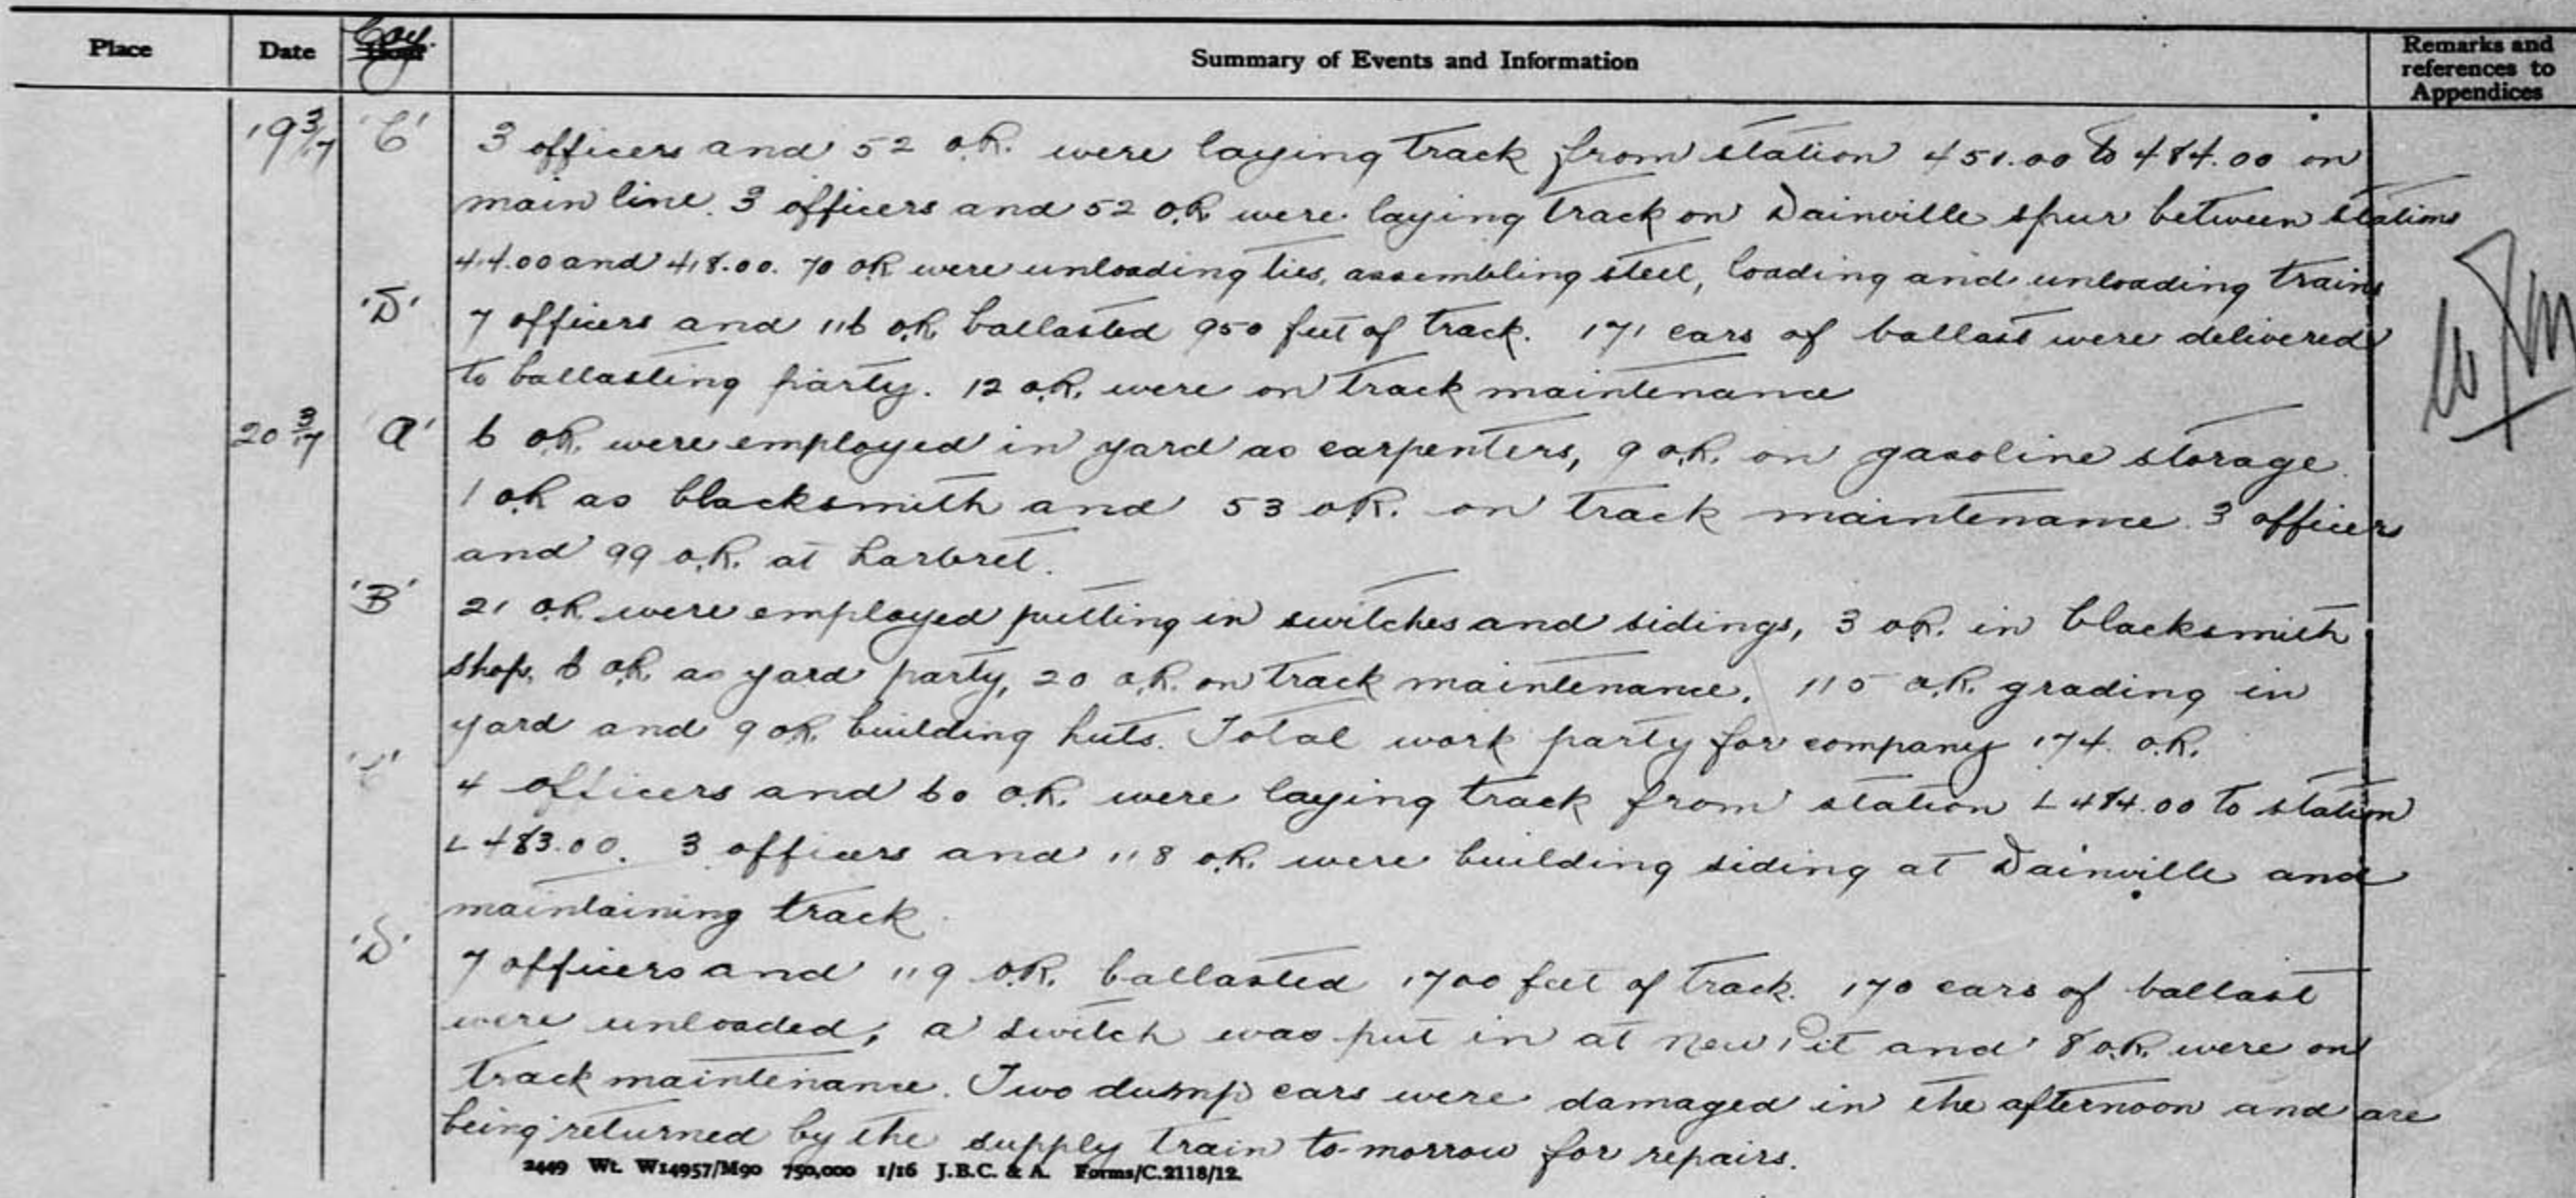 Place Date Coy. Hour Summary of Events and Information Remarks and references to Appendices
19 3/17 'C' 3 officers and 52 O.R. were laying track from station 451.00 to 484.00 on
main line. 3 officers and 52 O.R. were laying track on Dainville spur between stations
414.00 and 418.00. 70 O.R. were unloading ties, assembling steel, loading and unloading trains
'D' 7 officers and 116 O.R. ballasted 950 feet of track. 171 cars of ballast were delivered
to ballasting party. 12 O.R. were on track maintenance
20 3/17 'A' 6 O.R. were employed in yard as carpenters, 9 O.R. on gasoline storage.
1 O.R. as blacksmith and 53 O.R. on track maintenance. 3 officers
and 99 O.R. at Larbret.
'B' 21 O.R. were employed putting in switches and sidings, 3 O.R. in blacksmith
shop, 6 O.R. as yard party, 20 O.R. on track maintenance, 115 O.R. grading in
yard and 9 O.R. building huts. Total work party for company 174 O.R.
'C' 4 officers and 60 O.R. were laying track from station L 484.00 to station
L 483.00. 3 officers and 118 O.R. were building siding at Dainville and
maintaining track.
'D' 7 officers and 119 O.R. ballasted 1700 feet of track. 170 cars of ballast
were unloaded, a switch was put in at New Pit and 8 O.R. were on
track maintenance. Two dump cars were damaged in the afternoon and are
being returned by the supply train to-morrow for repairs.
2449 Wt. W14957/M90 750,000 1/16 J.B.C. & A. Forms/C.2118/12.